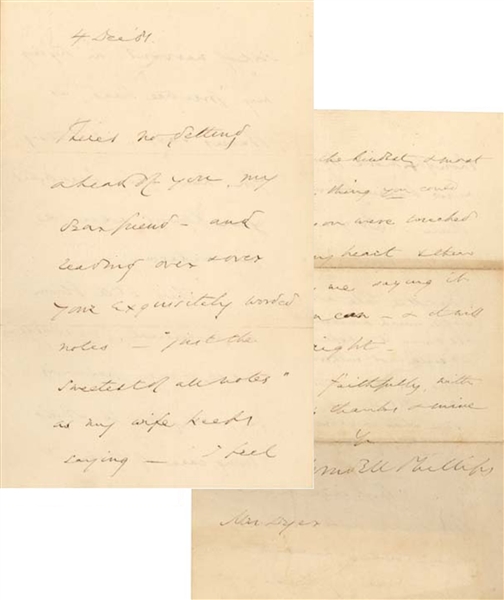 4 Dec '81.
There's no getting
ahead of you, my
dear friend – and
reading over & over
your exquisitely worded
notes – "just the
sweetest of all notes"
as my wife keeps
saying – I feel
the kindest & most
thing you could
were touched
heart & then
me saying it
can – & it will
right –
faithfully, with
thanks & mine
Phillips
Mrs Dyer